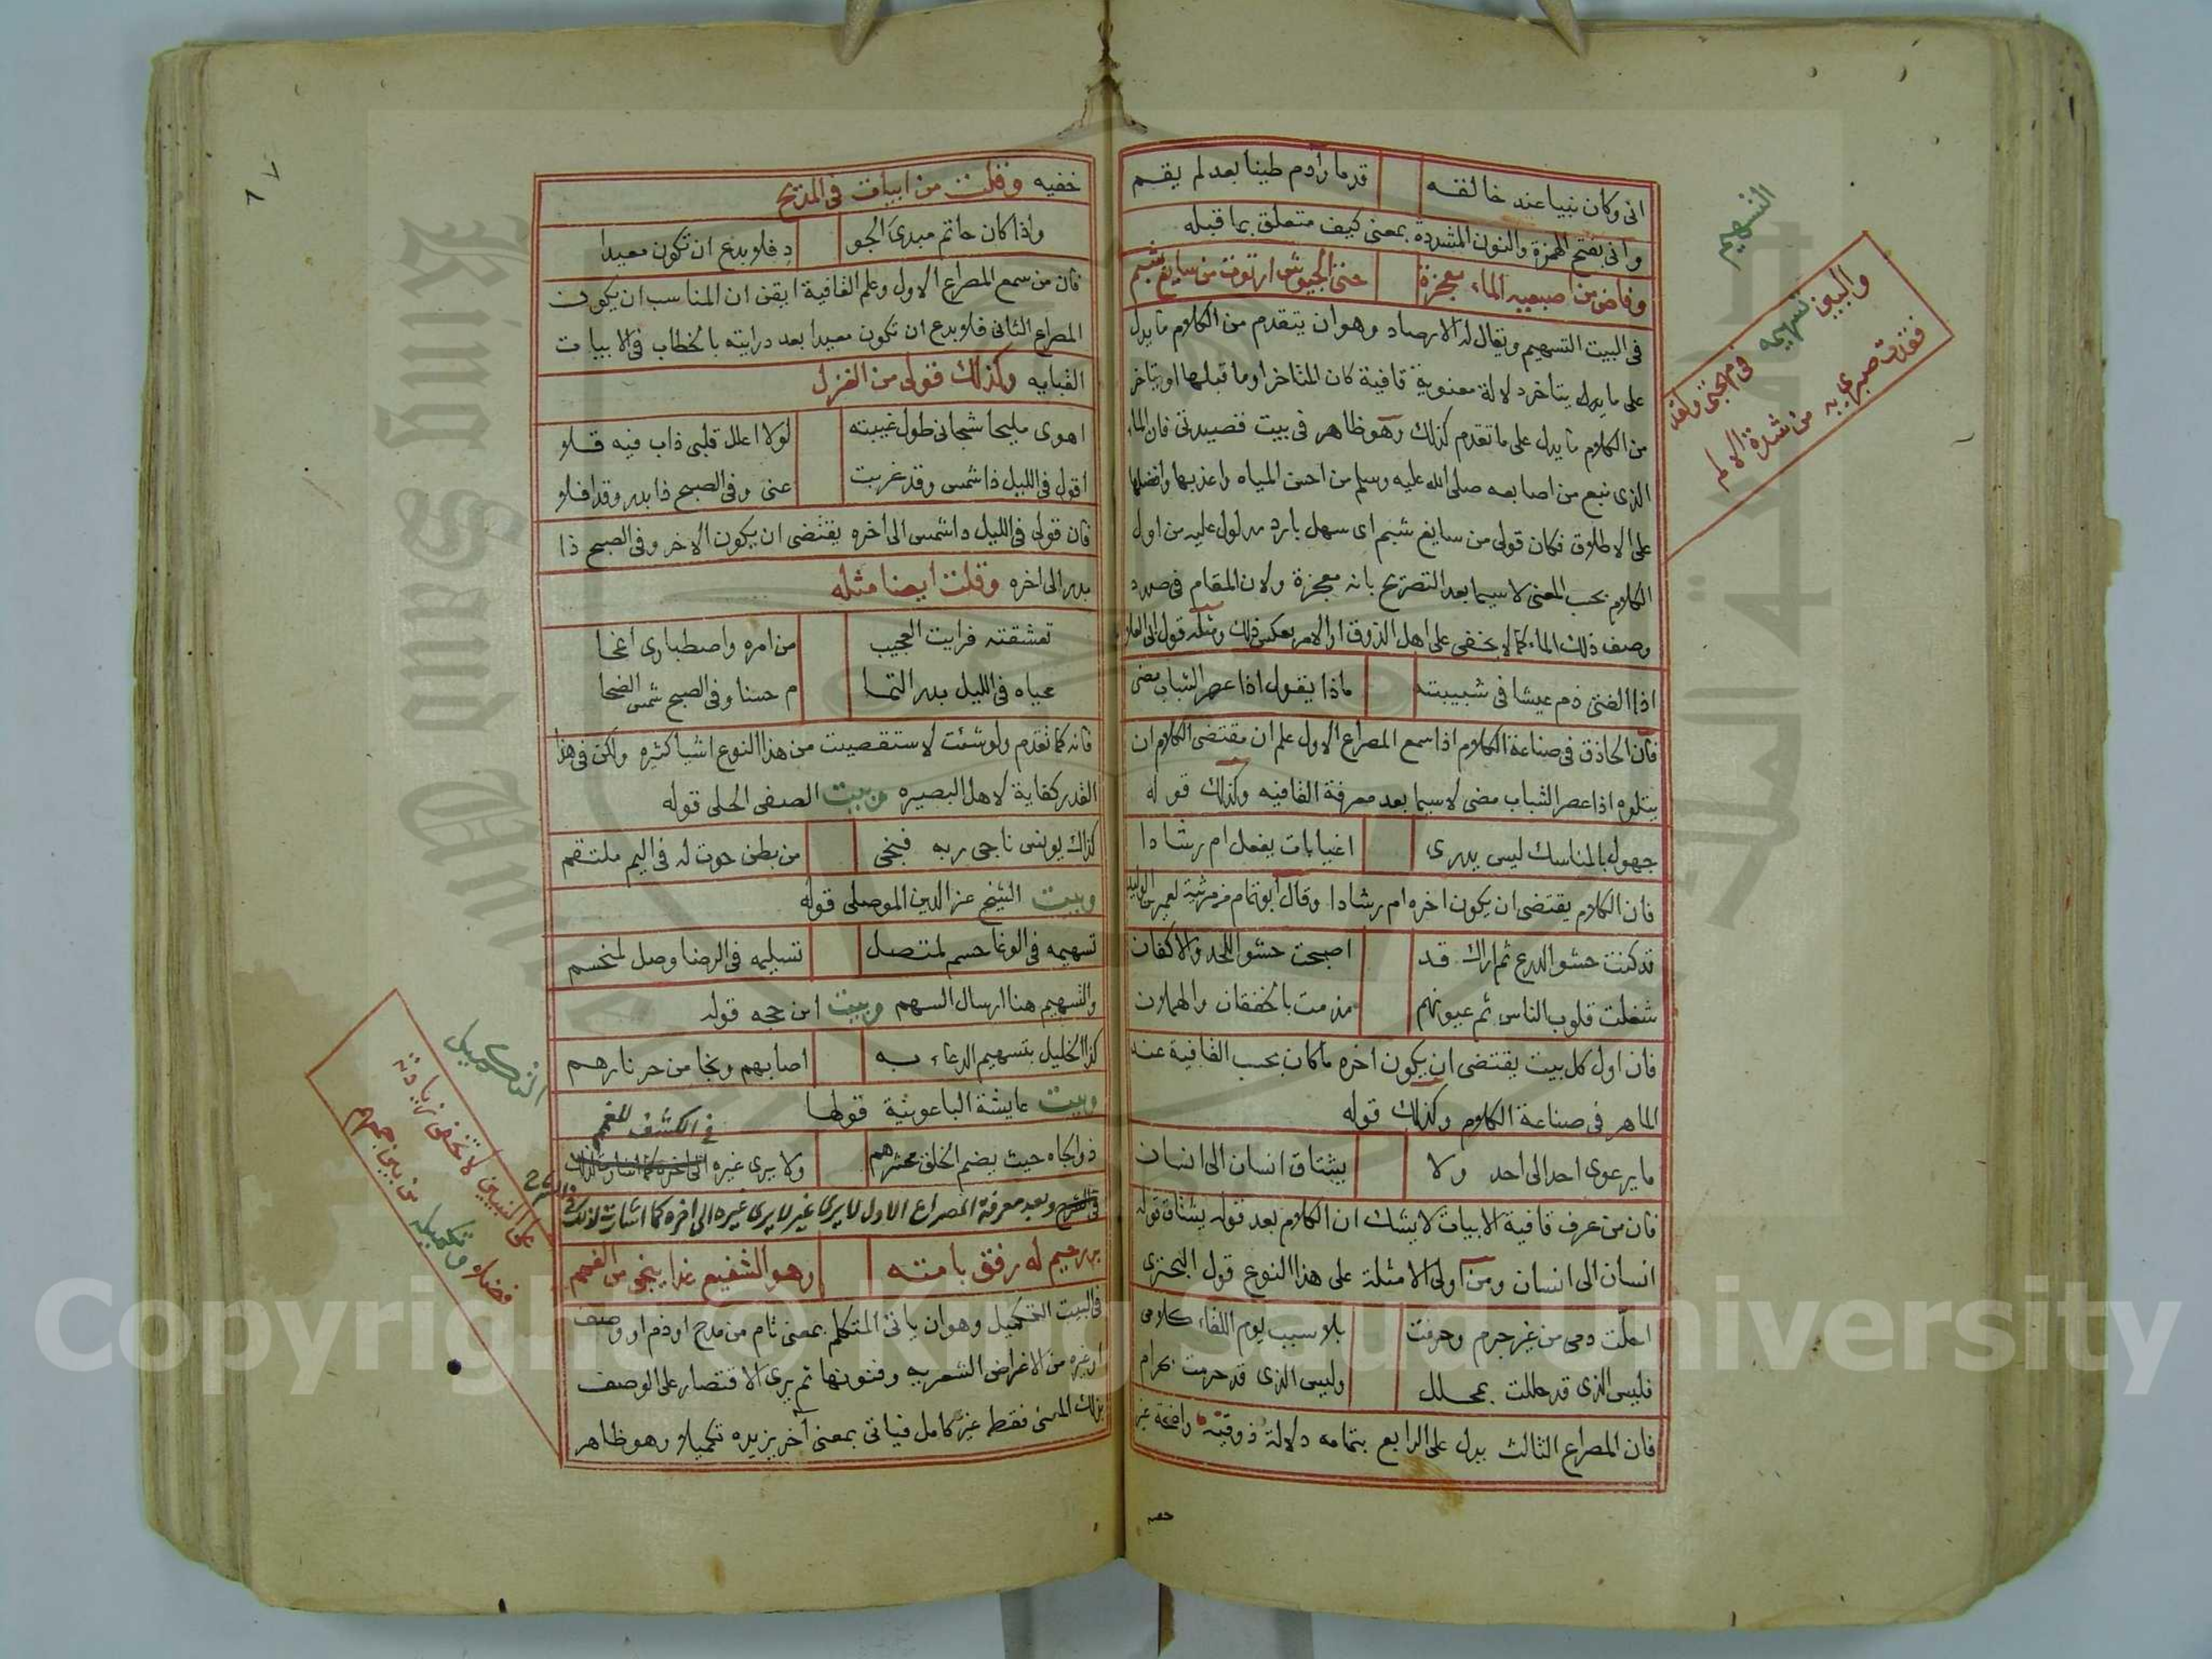 انى وكان نبيا عند خالقه قدما وآدم طينا بعد لم يقم
وانى بفتح الهمزة والنون المشددة بمعنى كيف متعلق بما قبله
وفاض من اصبعيه الماء معجزة حتى الجيوش ارتوت من سايغ شبم
فى البيت التسهيم ويقال له الارصاد وهو ان يتقدم من الكلام ما يدل
على ما يدل يتاخر دلالة معنوية قافية كان المتاخر او ما قبلها او يتاخر
من الكلام ما يدل على ما تقدم كذلك وهو ظاهر فى بيت قصيدتى فان الماء
الذى نبع من اصابعه صلى الله عليه وسلم من احسن المياه واعذبها وافضلها
على الاطلاق فكان قولى من سايغ شبم اى سهل بارد مدلول عليه من اول
الكلام بحسب المعنى لا سيما بعد التصريح بانه معجزة ولان المقام فى صدد
وصف ذلك الماء كما لا يخفى على اهل الذوق او الامر بعكس ذلك ومثله قول ابى العلا
اذا الفتى ذم عيشا فى شبيبته ماذا يقول اذا عصر الشباب مضى
فان الحاذق فى صناعة الكلام اذا سمع المصراع الاول علم ان مقتضى الكلام ان
يتلوه اذا عصر الشباب مضى لا سيما بعد معرفة القافيه وكذلك قوله
جهول بالمناسك ليس يدرى اغيا بات يفعل ام رشادا
فان الكلام يقتضى ان يكون اخره ام رشادا وقال ابو تمام فى مرثية لعمير بن الوليد
قد كنت حشو الدرع ثم اراك قد اصبحت حشو اللحد والاكفان
شغلت قلوب الناس ثم عيونهم مذ مت بالخفقان والهملان
فان اول كل بيت يقتضى ان يكون اخره ما كان بحسب القافية عند
الماهر فى صناعة الكلام وكذلك قوله
ما يرعوى احد الى احد ولا يشتاق انسان الى انسان
فان من عرف قافية الابيات لا يشك ان الكلام بعد قوله يشتاق قوله
انسان الى انسان ومن اولى الامثلة على هذا النوع قول البحترى
احلت دمى من غير جرم وحرمت بلا سبب يوم اللقاء كلامى
فليس الذى قد حللت بمحلل وليس الذى قد حرمت بحرام
فان المصراع الثالث يدل على الرابع بتمامه دلالة ذوقية واضحة غير
خفيه
التسهيم
والبين تسهيمه فى مهجتى ولقد
فقدت صبرى به من شدة الالم
خفيه وقلت من ابيات فى المديح
واذا كان حاتم مبدئ الجو د فلا بدع ان تكون معيدا
فان من سمع المصراع الاول وعلم القافية ايقن ان المناسب ان يكون
المصراع الثانى فلا بدع ان تكون معيدا بعد درايته بالخطاب فى الابيات
القبليه وكذلك قولى من الغزل
اهوى مليحا شجانى طول غيبته لولا اعلل قلبى ذاب فيه قلا
اقول فى الليل ذا شمس وقد غربت عنى وفى الصبح ذا بدر وقد افلا
فان قولى فى الليل ذا شمس الى اخره يقتضى ان يكون الاخر وفى الصبح ذا
بدر الى اخره وقلت ايضا مثله
تعشقته فرايت العجيب من امره واصطبارى اغحا
محياه فى الليل بدر التما م حسنا وفى الصبح شمس الضحا
فانه كما تقدم ولو شئت لاستقصيت من هذا النوع اشيا كثيره ولكن فى هذا
القدر كفاية لاهل البصيره وبيت الصفى الحلى قوله
كذاك يونس ناجى ربه فنجى من بطن حوت له فى اليم ملتقم
وبيت الشيخ عز الدين الموصلى قوله
تسهيمه فى الوغا حسم لمتصل تسليمه فى الرضا وصل لمنحسم
والتسهيم هنا ارسال السهم وبيت ابن حجه قوله
كذا الخليل بتسهيم الدعاء به اصابهم ونجا من حر نارهم
وبيت عايشة الباعونية قولها
ذو الجاه حيث يضم الخلق محشرهم ولا يرى غيره فى الكشف للغمم
وبعد معرفة المصراع الاول لا يرى غير لا يرى غيره الى اخره كما اشارت لذلك فى الشرح
بر رحيم له رفق بامته وهو الشفيع غدا ينجى من الغمم
فى البيت التكميل وهو ان ياتى المتكلم بمعنى تام من مدح او ذم او وصف
او غيره من الاغراض الشعريه وفنونها ثم يرى الاقتصار على الوصف
بذلك المعنى فقط غير كامل فياتى بمعنى آخر يزيده تكميلا وهو ظاهر
التكميل
على النبيين لا تخفى زيادته
فضلا وتكميله من بين جمعهم
Copyright © King Saud University